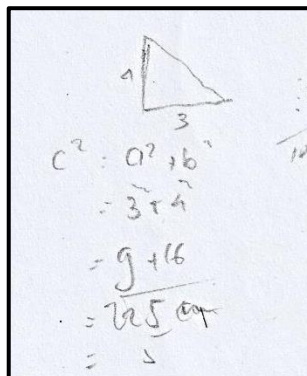 4
3
c² = a² + b²
= 3² + 4²
= 9 + 16
= √25
= 5